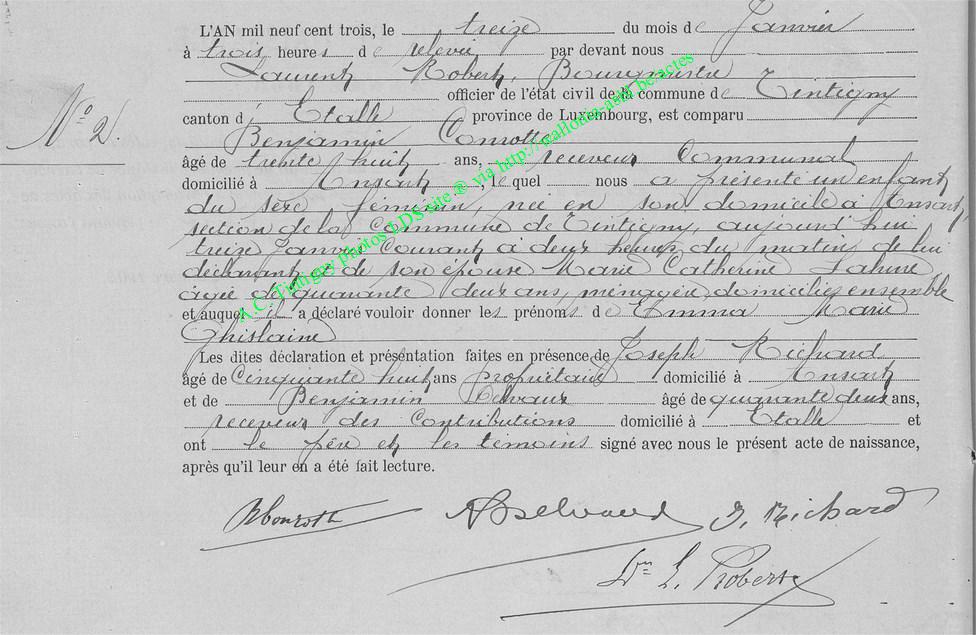 L'AN mil neuf cent trois, le treize du mois de Janvier
à trois heures de relevée par devant nous
Laurent Robert, Bourgmestre
officier de l'état civil de la commune de Tintigny
canton d'Etalle province de Luxembourg, est comparu
N° 2.
Benjamin
âgé de trente huit ans, receveur Communal
domicilié à Ansart, lequel nous a présenté un enfant
du sexe féminin, née en son domicile à Ansart
section de la Commune de Tintigny, aujourd'hui
treize Janvier Courant à deux heures du matin de lui
déclarant, de son épouse Marie Catherine
âgée de quarante deux ans, ménagère, domiciliés ensemble
et auquel il a déclaré vouloir donner les prénoms de Emma Marie
Ghislaine
Les dites déclaration et présentation faites en présence de Joseph Richard
âgé de Cinquante huit ans propriétaire domicilié à Ansart
et de Benjamin Delvaux âgé de quarante deux ans,
receveur des Contributions domicilié à Etalle et
ont le père et les témoins signé avec nous le présent acte de naissance,
après qu'il leur en a été fait lecture.
J. Richard
Dr L. Robert
A.C. Tintigny photos LDS site @ via http://wallonia-asbl.be/actes